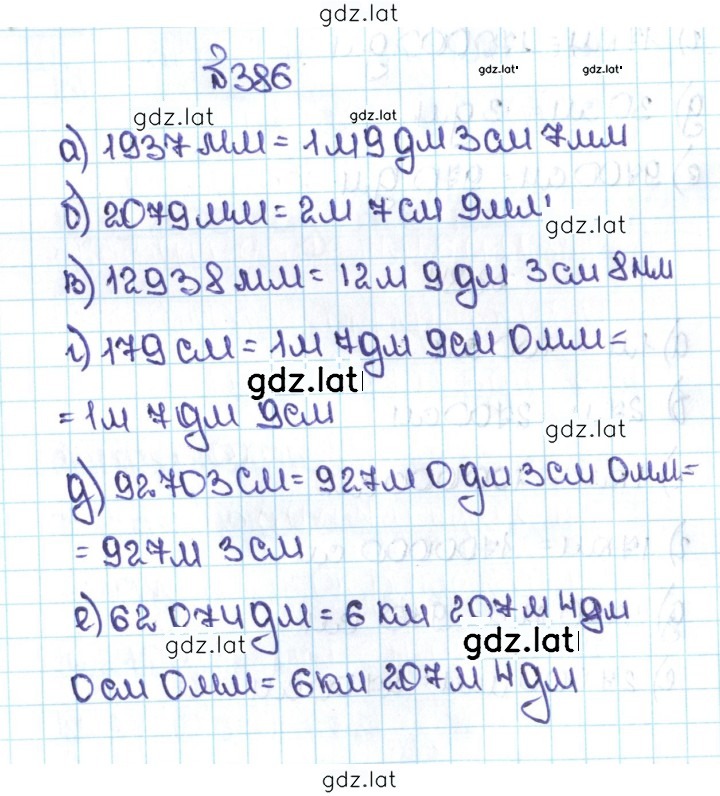 gdz.lat
№386
gdz.lat gdz.lat
gdz.lat gdz.lat
а) 1937 мм = 1м 9 дм 3 см 7мм
б) 2079 мм = 2м 7см 9мм
gdz.lat
в) 12938 мм = 12м 9 дм 3 см 8мм
г) 179 см = 1м 7дм 9см 0мм =
gdz.lat
= 1м 7дм 9см
gdz.lat
д) 92703 см = 927м 0 дм 3 см 0мм =
= 927м 3 см
е) 62 074 дм = 6 км 207м 4дм
gdz.lat gdz.lat
0 см 0мм = 6 км 207м 4дм
gdz.lat